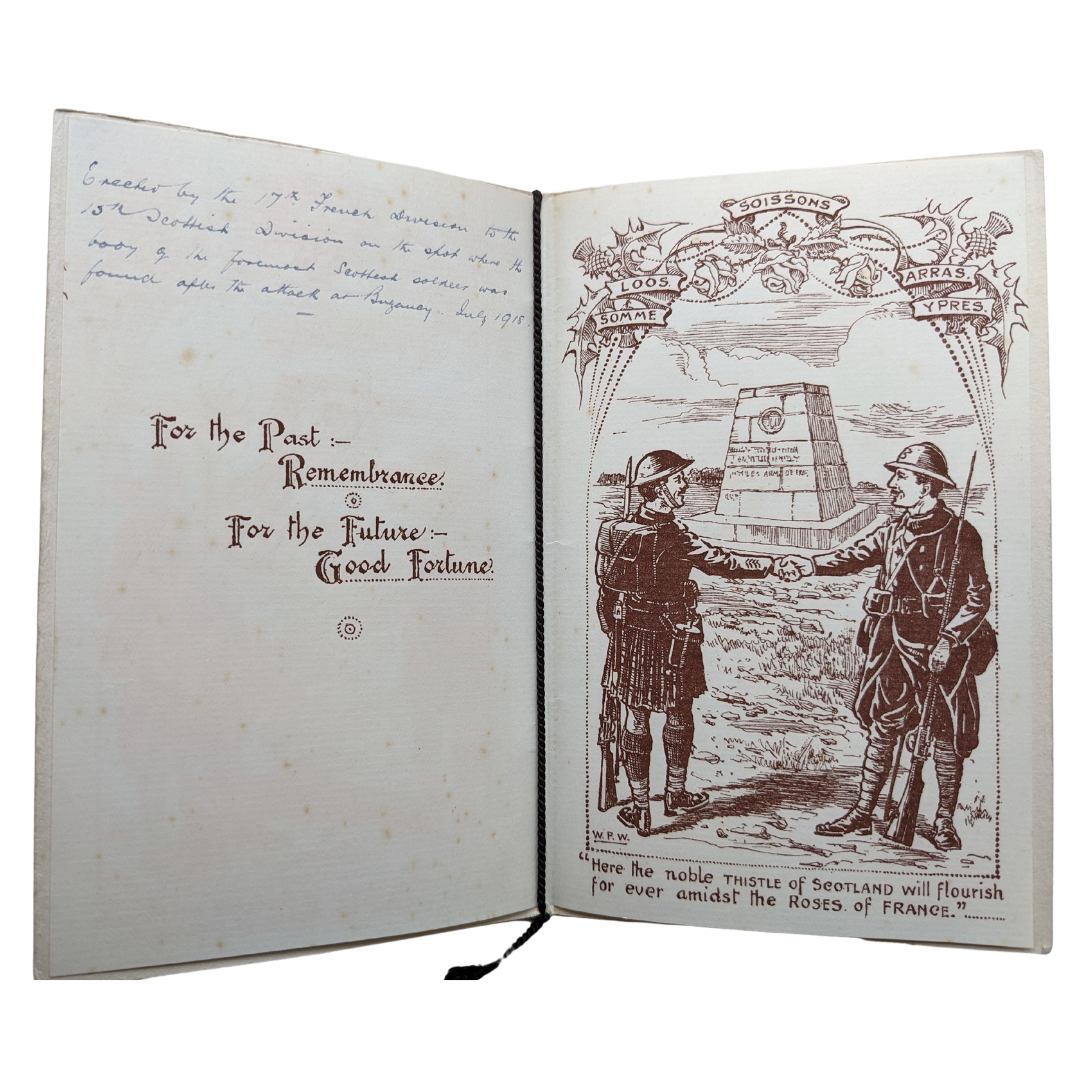 Erected by the 17th French Division to the
15th Scottish Division on the spot where the
body of the foremost Scottish soldier was
found after the attack at Buzancy. July 1918.
For the Past :-
Remembrance.
For the Future :-
Good Fortune.
SOISSONS
LOOS.
SOMME
ARRAS.
YPRES.
W. P. W.
"Here the noble THISTLE of SCOTLAND will flourish
for ever amidst the ROSES. of FRANCE."